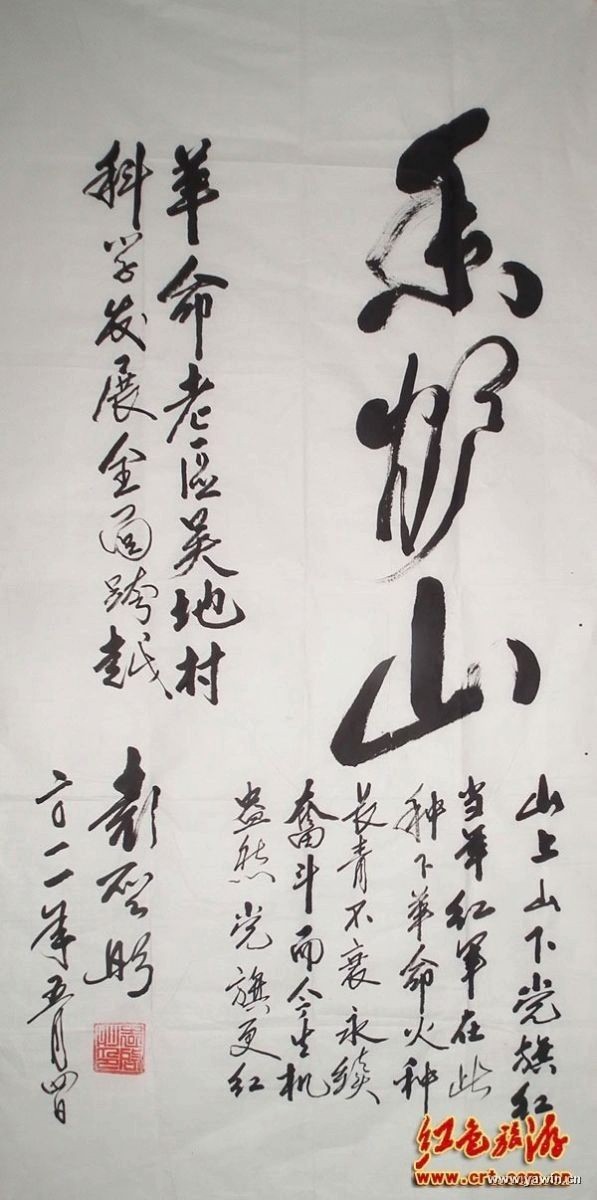 香炉山
山上山下党旗红
当年红军在此
种下革命火种
长青不衰永续
奮斗而今生机
盎然党旗更红
革命老區吴地村
科学发展全面跨越
彭
二〇一一年五月四日
红色旅游
www.crt.com.cn
www.yawin.cn